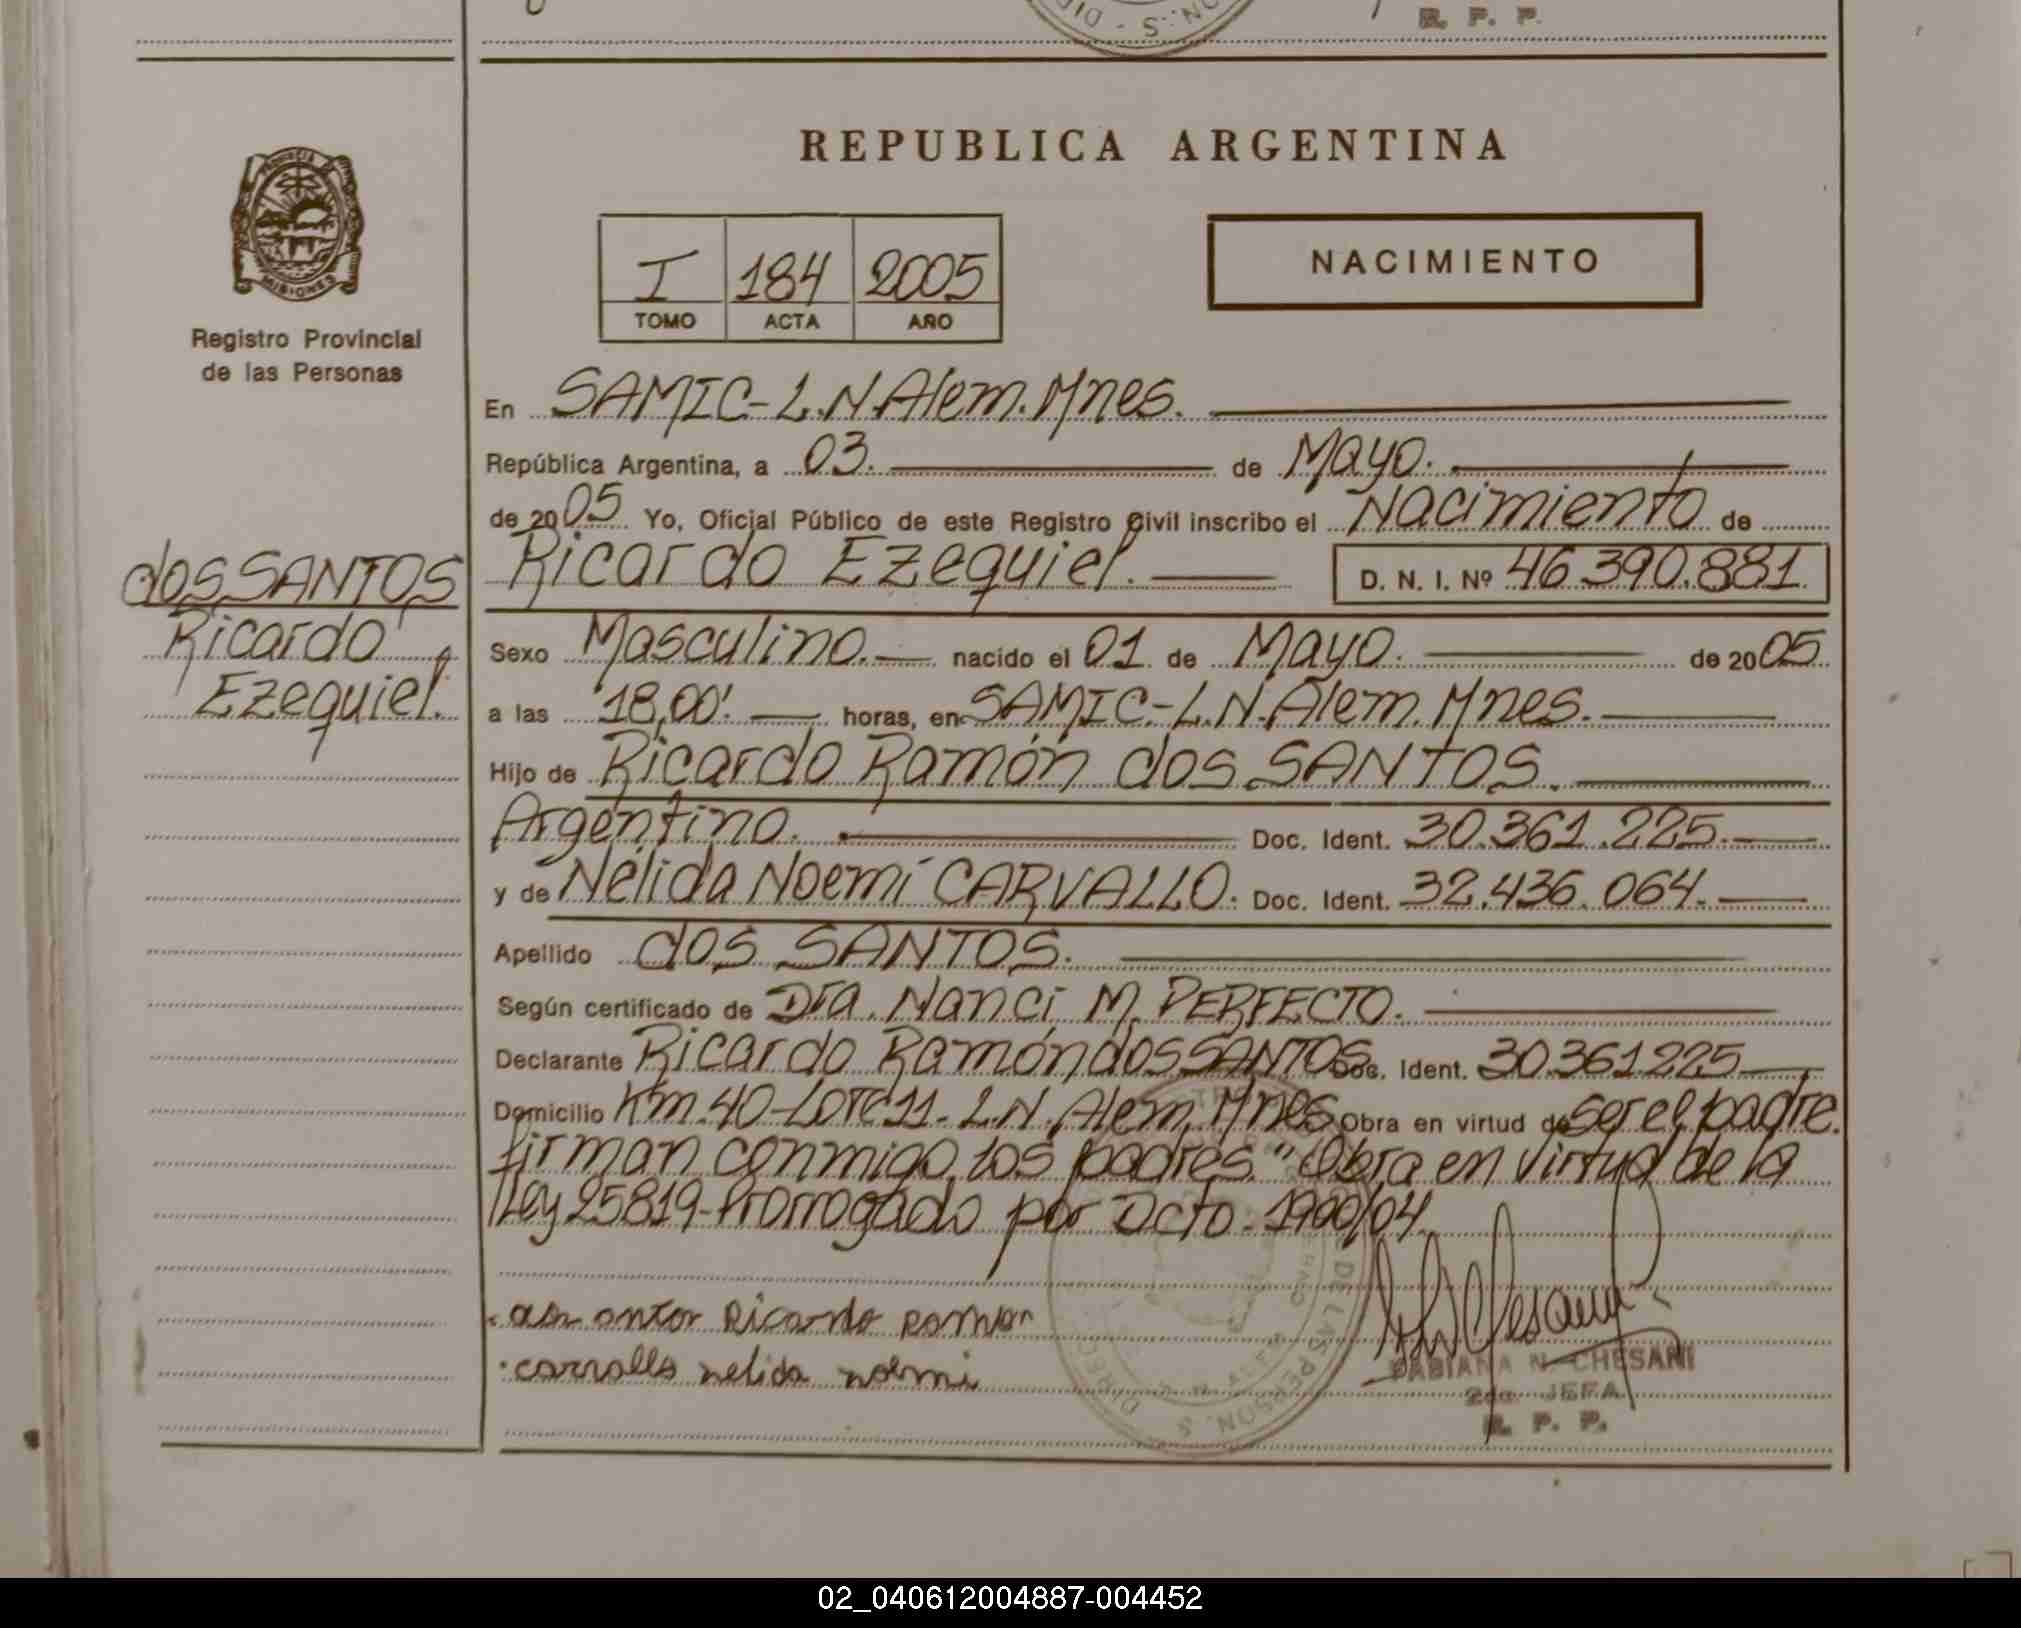 R. P. P.
REPUBLICA ARGENTINA
PROVINCIA
MISIONES
Registro Provincial
de las Personas
I 184 2005
TOMO ACTA AÑO
NACIMIENTO
En SAMIC-L.N.Alem.Mnes.
República Argentina, a 03. de Mayo.
de 2005 Yo, Oficial Público de este Registro Civil inscribo el Nacimiento de
Ricardo Ezequiel. D. N. I. Nº 46.390.881.
dos SANTOS
Ricardo
Ezequiel.
Sexo Masculino. nacido el 01 de Mayo. de 2005
a las 18,00'. horas, en SAMIC-L.N.Alem.Mnes.
Hijo de Ricardo Ramón dos SANTOS.
Argentino. Doc. Ident. 30.361.225.
y de Nélida Noemí CARVALLO. Doc. Ident. 32.436.064.
Apellido dos SANTOS.
Según certificado de Dra. Nanci M. PERFECTO.
Declarante Ricardo Ramón dos SANTOS Doc. Ident. 30.361225
Domicilio Km.40-Lote 11-L.N.Alem.Mnes Obra en virtud de ser el padre.
firman conmigo los padres. "Obra en virtud de la
Ley 25819-Prorrogado por Dcto. 1900/04
Ricardo Ramon
carvallo nelida noemi
FABIANA N. CHESANI
2da. JEFA
R. P. P.
02_040612004887-004452